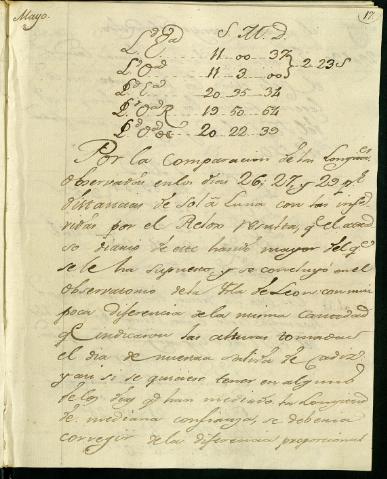 Mayo.
17.
S. M. D.
11 .. 00 .. 37
11 .. 3 .. 00 } 2 .. 23 S
20 .. 35 .. 34
19 .. 50 .. 64
20 .. 22 .. 39
Por la comparacion de las Longitudes
observadas en los dias 26, 27, y 29 pr
distancias de Sol à Luna con las infe-
ridas por el Relox resulta, qe el atra-
so diario de este había mayor del qe
se le ha supuesto, y se concluyó en el
observatorio de la Isla de Leon con mui
poca diferencia de la misma cantidad
qe indicaron las alturas tomadas
el dia de nuestra salida de Cadiz
y asi si se quisiese tener en alguno
de los dias qe han mediado la Longitud
de mediana confianza, se deberia
corregir de la diferencia proporcional